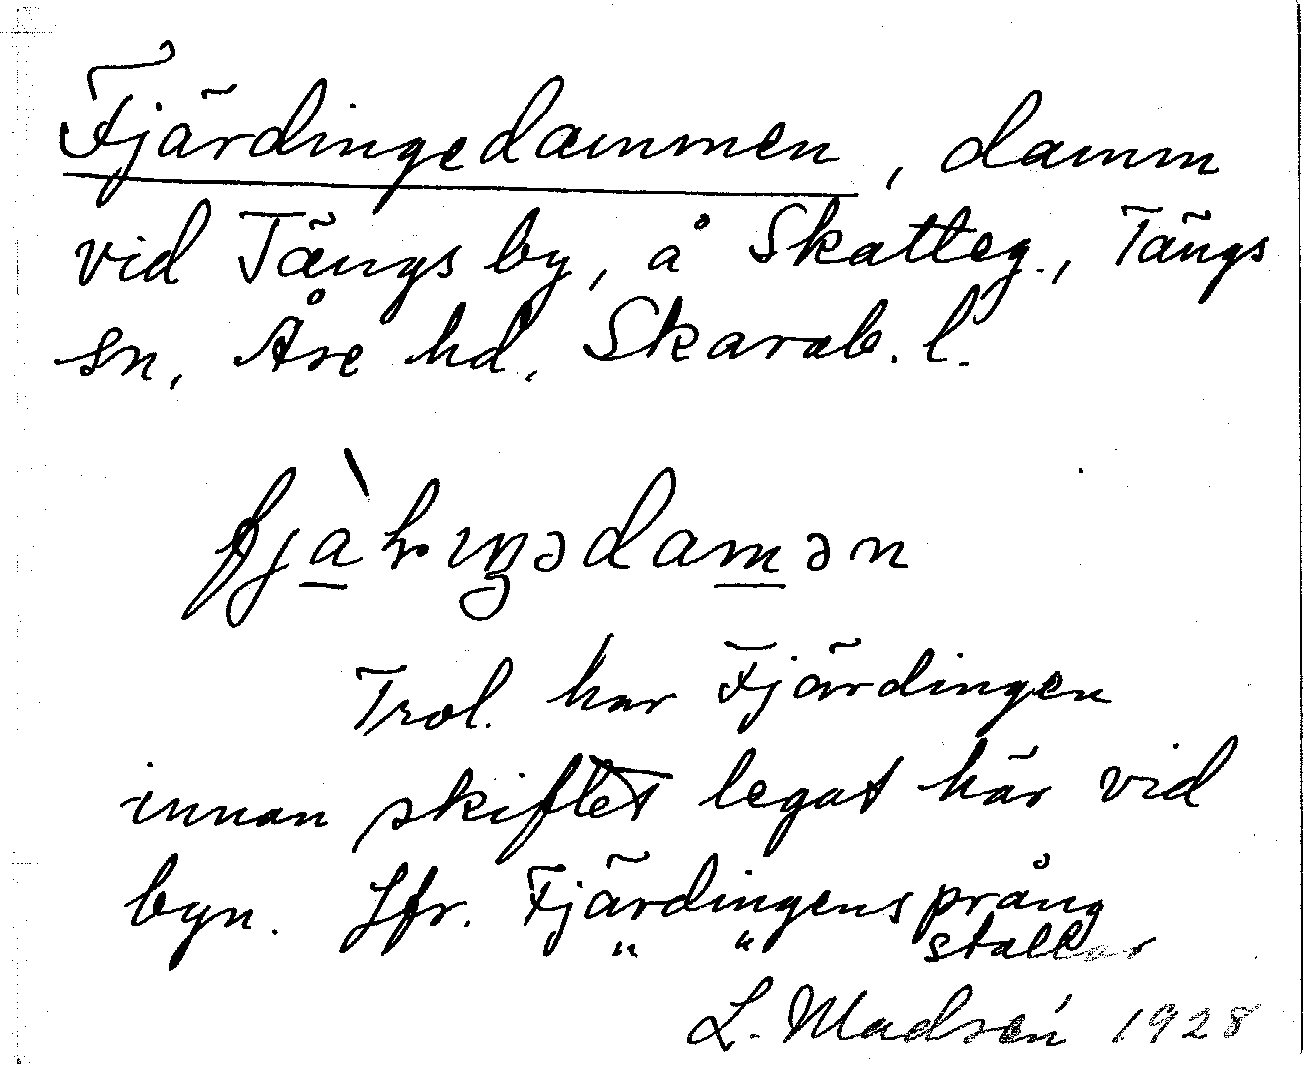 Fjärdingedammen, damm
vid Tängs by, å Skatteg., Tängs
sn, Åse hd, Skarab. l.
fjàhɩŋədamən
Trol. har Fjärdingen
innan skiftet legat här vid
byn. Jfr. Fjärdingens prång
" " stallar
L. Madsén 1928